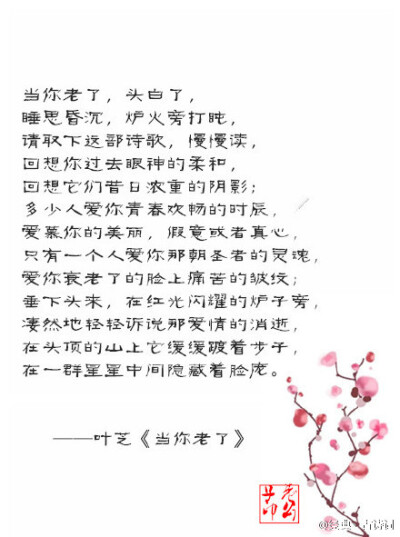 当你老了，头白了，
睡思昏沉，炉火旁打盹，
请取下这部诗歌，慢慢读，
回想你过去眼神的柔和，
回想它们昔日浓重的阴影；
多少人爱你青春欢畅的时辰，
爱慕你的美丽，假意或者真心，
只有一个人爱你那朝圣者的灵魂，
爱你衰老了的脸上痛苦的皱纹；
垂下头来，在红光闪耀的炉子旁，
凄然地轻轻诉说那爱情的消逝，
在头顶的山上它缓缓踱着步子，
在一群星星中间隐藏着脸庞。
——叶芝《当你老了》